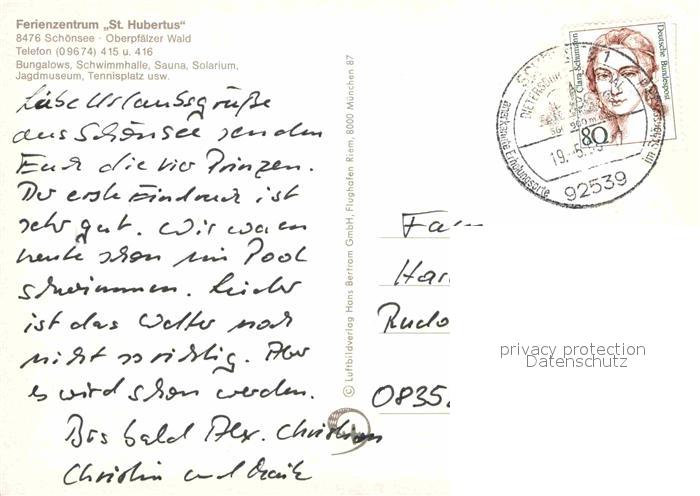 Ferienzentrum „St. Hubertus“
8476 Schönsee · Oberpfälzer Wald
Telefon (09674) 415 u. 416
Bungalows, Schwimmhalle, Sauna, Solarium,
Jagdmuseum, Tennisplatz usw.
Liebe Urlaubsgrüße
aus Schönsee senden
Euch die vier Prinzen.
Der erste Eindruck ist
sehr gut. Wir waren
heute schon im Pool
schwimmen. Leider
ist das Wetter noch
nicht so richtig. Aber
es wird schon werden.
Bis bald Alex. Christian
Christin und
© Luftbildverlag Hans Bertram GmbH, Flughafen Riem, 8000 München 87
Clara Schumann
Deutsche Bundespost
80
19.5.
92539
anerkannte Erholungsorte
im Schönse
Fa
Har
Rudo
0835
privacy protection
Datenschutz